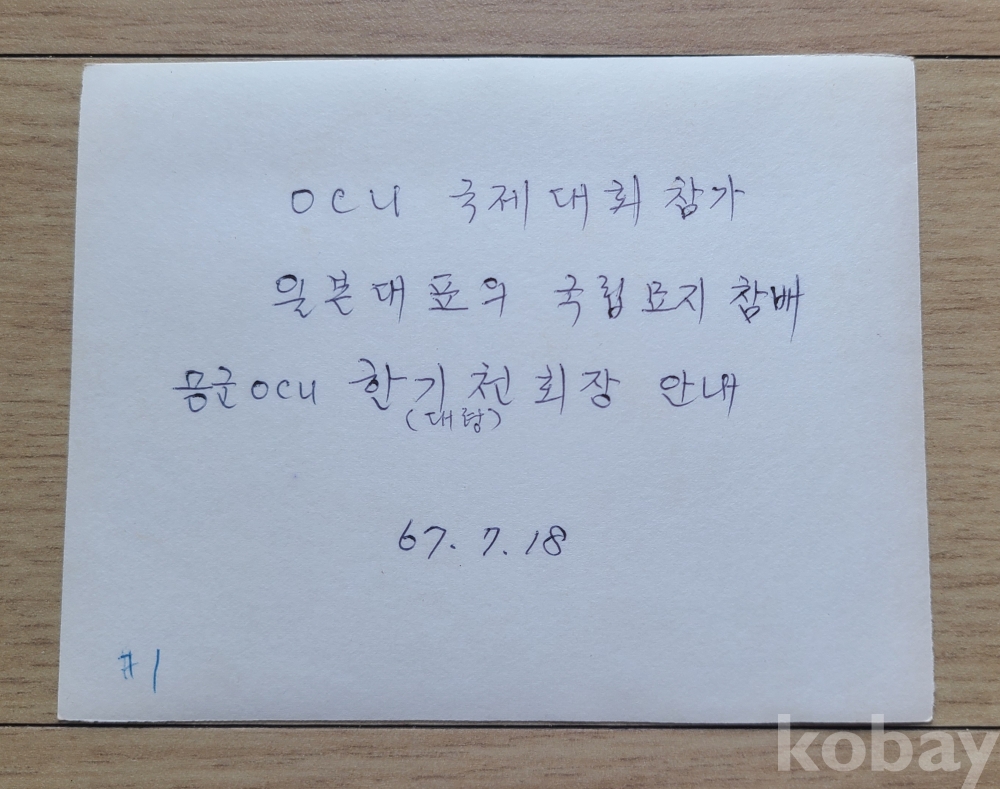 OCU 국제대회참가
일본대표의 국립묘지참배
공군OCU 한기천회장 안내
(대령)
67. 7. 18
#1
kobay